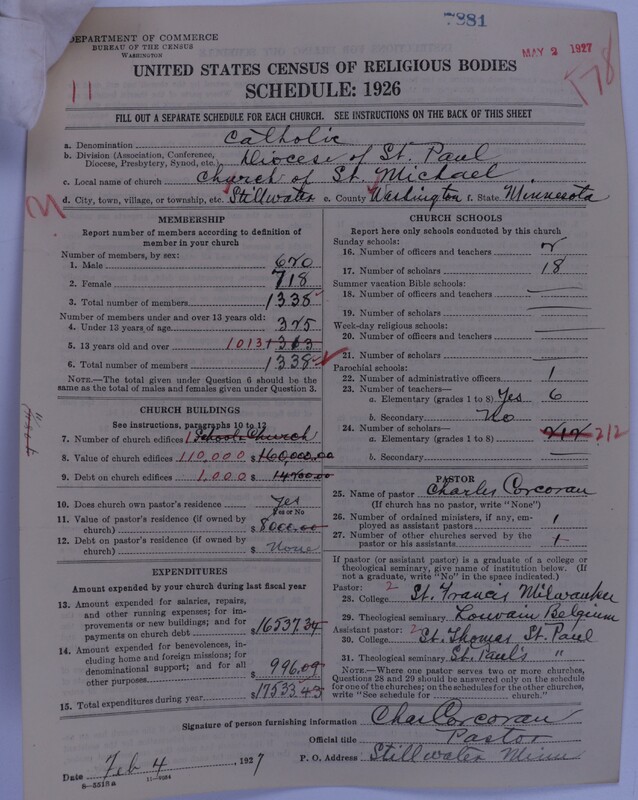 7881
DEPARTMENT OF COMMERCE
BUREAU OF THE CENSUS
WASHINGTON
MAY 2 1927
178
UNITED STATES CENSUS OF RELIGIOUS BODIES
11
SCHEDULE: 1926
FILL OUT A SEPARATE SCHEDULE FOR EACH CHURCH. SEE INSTRUCTIONS ON THE BACK OF THIS SHEET
a. Denomination Catholic
b. Division (Association, Conference, Diocese, Presbytery, Synod, etc.) Diocese of St. Paul
c. Local name of church Church of St. Michael
d. City, town, village, or township, etc. Stillwater e. County Washington f. State Minnesota
MEMBERSHIP
Report number of members according to definition of
member in your church
Number of members, by sex:
1. Male 620
2. Female 718
3. Total number of members 1338
Number of members under and over 13 years old:
4. Under 13 years of age 325
5. 13 years old and over 1013 1313
6. Total number of members 1338
NOTE.—The total given under Question 6 should be the
same as the total of males and females given under Question 3.
CHURCH BUILDINGS
See instructions, paragraphs 10 to 12
7. Number of church edifices 1 School & Church
8. Value of church edifices 110,000 $ 160,000.00
9. Debt on church edifices 1,000 $ 14200.00
10. Does church own pastor's residence Yes
Yes or No
11. Value of pastor's residence (if owned by
church) $ 8000.00
12. Debt on pastor's residence (if owned by
church) $ None
EXPENDITURES
Amount expended by your church during last fiscal year
13. Amount expended for salaries, repairs,
and other running expenses; for im-
provements or new buildings; and for
payments on church debt $ 16537.34
14. Amount expended for benevolences, in-
cluding home and foreign missions; for
denominational support; and for all
other purposes $ 996.09
15. Total expenditures during year $ 17533.43
CHURCH SCHOOLS
Report here only schools conducted by this church
Sunday schools:
16. Number of officers and teachers 2
17. Number of scholars 18
Summer vacation Bible schools:
18. Number of officers and teachers
19. Number of scholars
Week-day religious schools:
20. Number of officers and teachers
21. Number of scholars
Parochial schools:
22. Number of administrative officers 1
23. Number of teachers—
a. Elementary (grades 1 to 8) Yes 6
b. Secondary No
24. Number of scholars—
a. Elementary (grades 1 to 8) 212 212
b. Secondary
PASTOR
25. Name of pastor Charles Corcoran
(If church has no pastor, write "None")
26. Number of ordained ministers, if any, em-
ployed as assistant pastors 1
27. Number of other churches served by the
pastor or his assistants 1
If pastor (or assistant pastor) is a graduate of a college or
theological seminary, give name of institution below. (If
not a graduate, write "No" in the space indicated.)
Pastor: 2
28. College St. Francis Milwaukee
29. Theological seminary Louvain Belgium
Assistant pastor: 2
30. College St. Thomas St. Paul
31. Theological seminary St. Paul's "
NOTE.—Where one pastor serves two or more churches,
Questions 28 and 29 should be answered only on the schedule
for one of the churches; on the schedules for the other churches,
write "See schedule for church."
Signature of person furnishing information Chas Corcoran
Official title Pastor
Date Feb 4, 1927 P. O. Address Stillwater Minn
8—5518a 11—9204